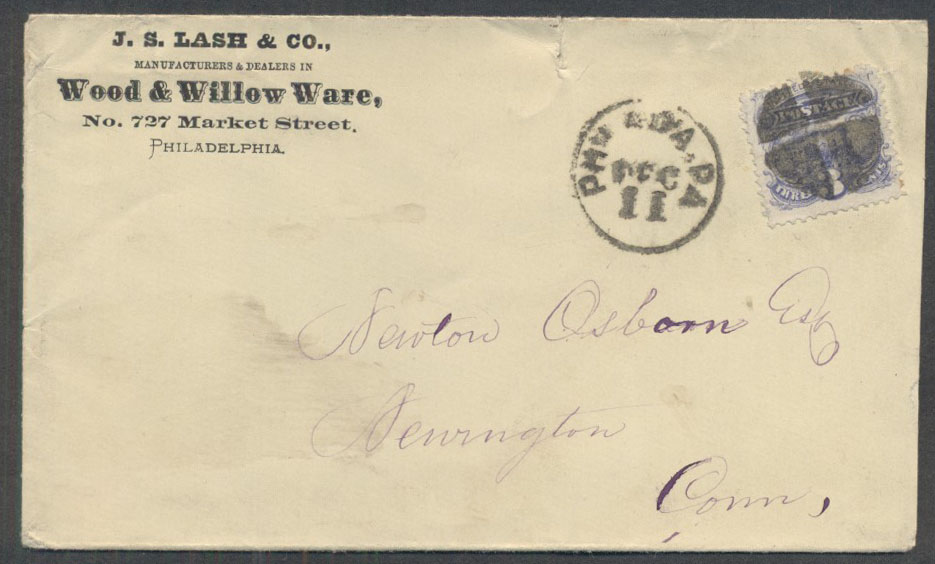 J. S. LASH & CO.,
MANUFACTURERS & DEALERS IN
Wood & Willow Ware,
No. 727 Market Street.
PHILADELPHIA.
PHILADA, PA
DEC
11
POSTAGE
THREE 3 CENTS
Newton Osborn Esq
Newington
Conn,